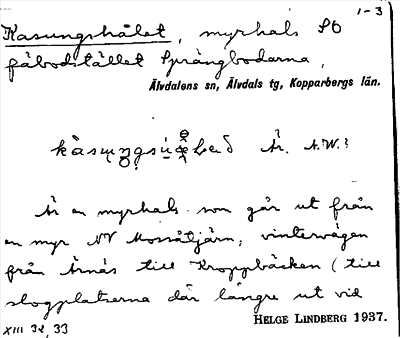 1-3
Kasungshålet, myrhals SO
fäbodstället Sprängbodarna,
Älvdalens sn, Älvdals tg, Kopparbergs län.
Är. N.W.:
Är en myrhals som går ut från
en myr NV Mossåtjärn, vintervägen
från Årnäs till Kroppbäcken (till
slogplatserna där längre ut vid
HELGE LINDBERG 1937.
XIII 32, 33